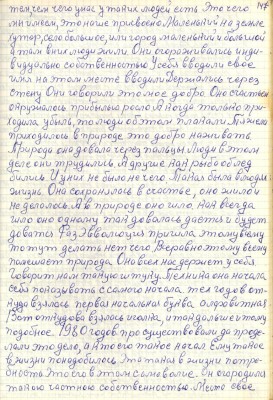 147
тем чем чего у нас у таких людей есть Это чего
мы имеем, это наше присвоено Маленький на земле
хутор, село большое, или город маленький и большой
а там в них люди жили. Они огораживались инди-
видуально собственностью У себя вводили свое
имя на этом месте вводили Держались через
стену Они говорили это мое добро Оно счастьем
окружалось прибылью росло А когда только при-
ходила убыль, то люди об этом плакали
приходилось в природе это добро наживать
Природа оно давала через пальцы Люди в этом
деле они трудились, а другие как рыба об лед
бились У них не было не чего Такая была в людях
жизнь. Она сохранялось в счастье, оно жило и
не делалось. А в природе оно шло, как всегда
шло оно одному так давалось дается и будет
даваться Раз эволюция пришла этому всему
то тут делать нечего. Все равно этому всему
помешает природа Она всех нас держит у себя
Говорит нам такую штуку. Техника она начала
себя показывать с самого начала тех годов от-
куда взялась первая начальная буква алфавитная
Вот откудова взялась иголка, и так дальше и тому
подобное. 1980 годов просуществовали, да проде-
лали это дело, а кто его такое начал Ему такое
в жизни понадобилось, Эта такая в жизни потре-
бность Это его в этом самоволие. Он огородился
такою частною собственностью. Место свое